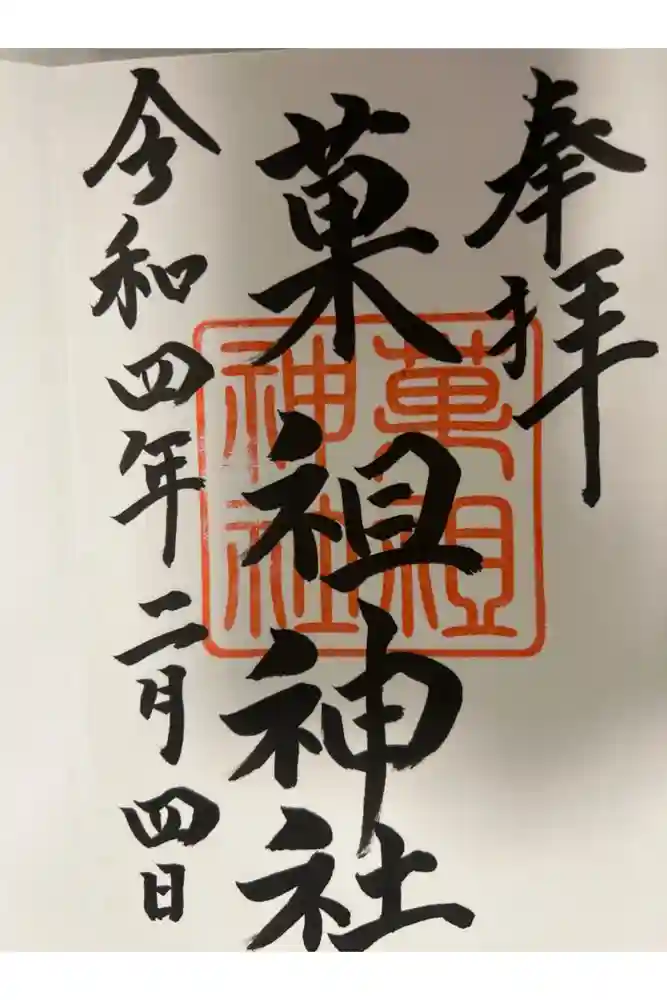 奉拝
菓祖神社
菓祖神社
令和四年二月四日